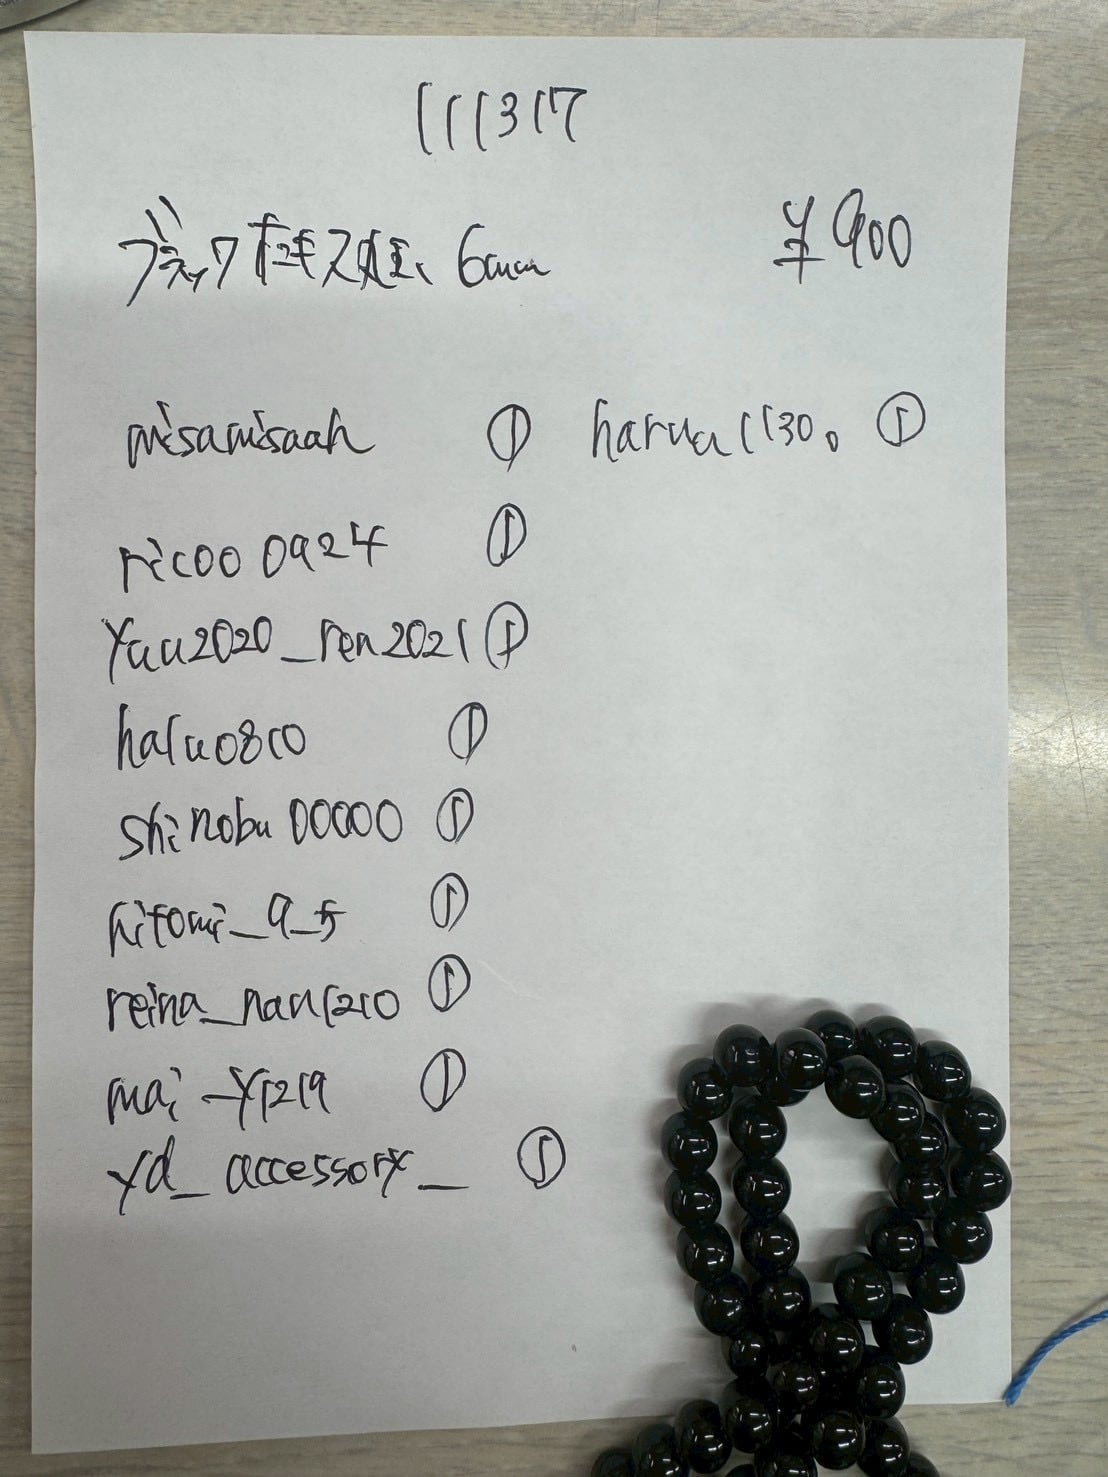 111317
ブラックオニキス丸玉、6mm ¥900
misamisaah ① harua1130。 ①
ricoo0924 ①
yuu2020_ren2021 ①
halu0810 ①
shinobu00000 ①
hitomi_9_5 ①
reina_nan1210 ①
mai_y1219 ①
yd_accessory_ ①